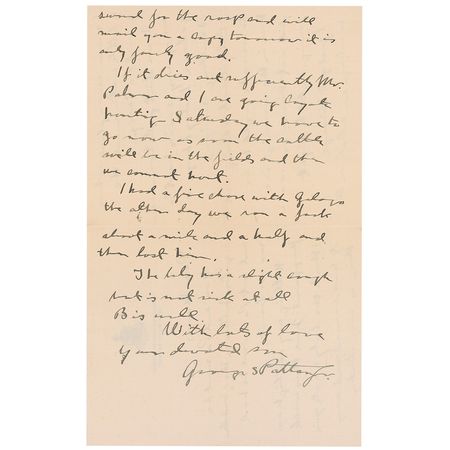 sword for the and will
mail you a copy tomorrow it is
only fairly good.
If it dries out sufficiently Mr.
Palmer and I are going coyote
hunting Saturday we have to
go now as soon the cattle
will be in the fields and then
we cannot hunt.
I had a fine chase with
the other day we ran a jack
about a mile and a half and
then lost him.
The baby has a slight cough
but is not sick at all
B is well
With lots of love
Your devoted son
George S Patton Jr.